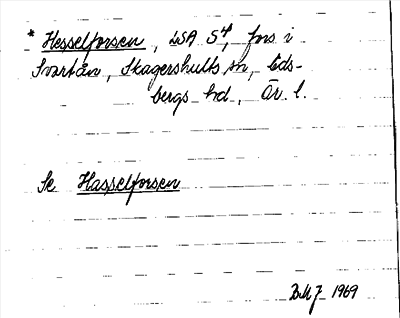 * Hesselforsen, LSA S4, fors i
Svartån, Skagershults sn, Eds-
bergs hd, Ör. l.
Se Hasselforsen
B.M.J. 1969